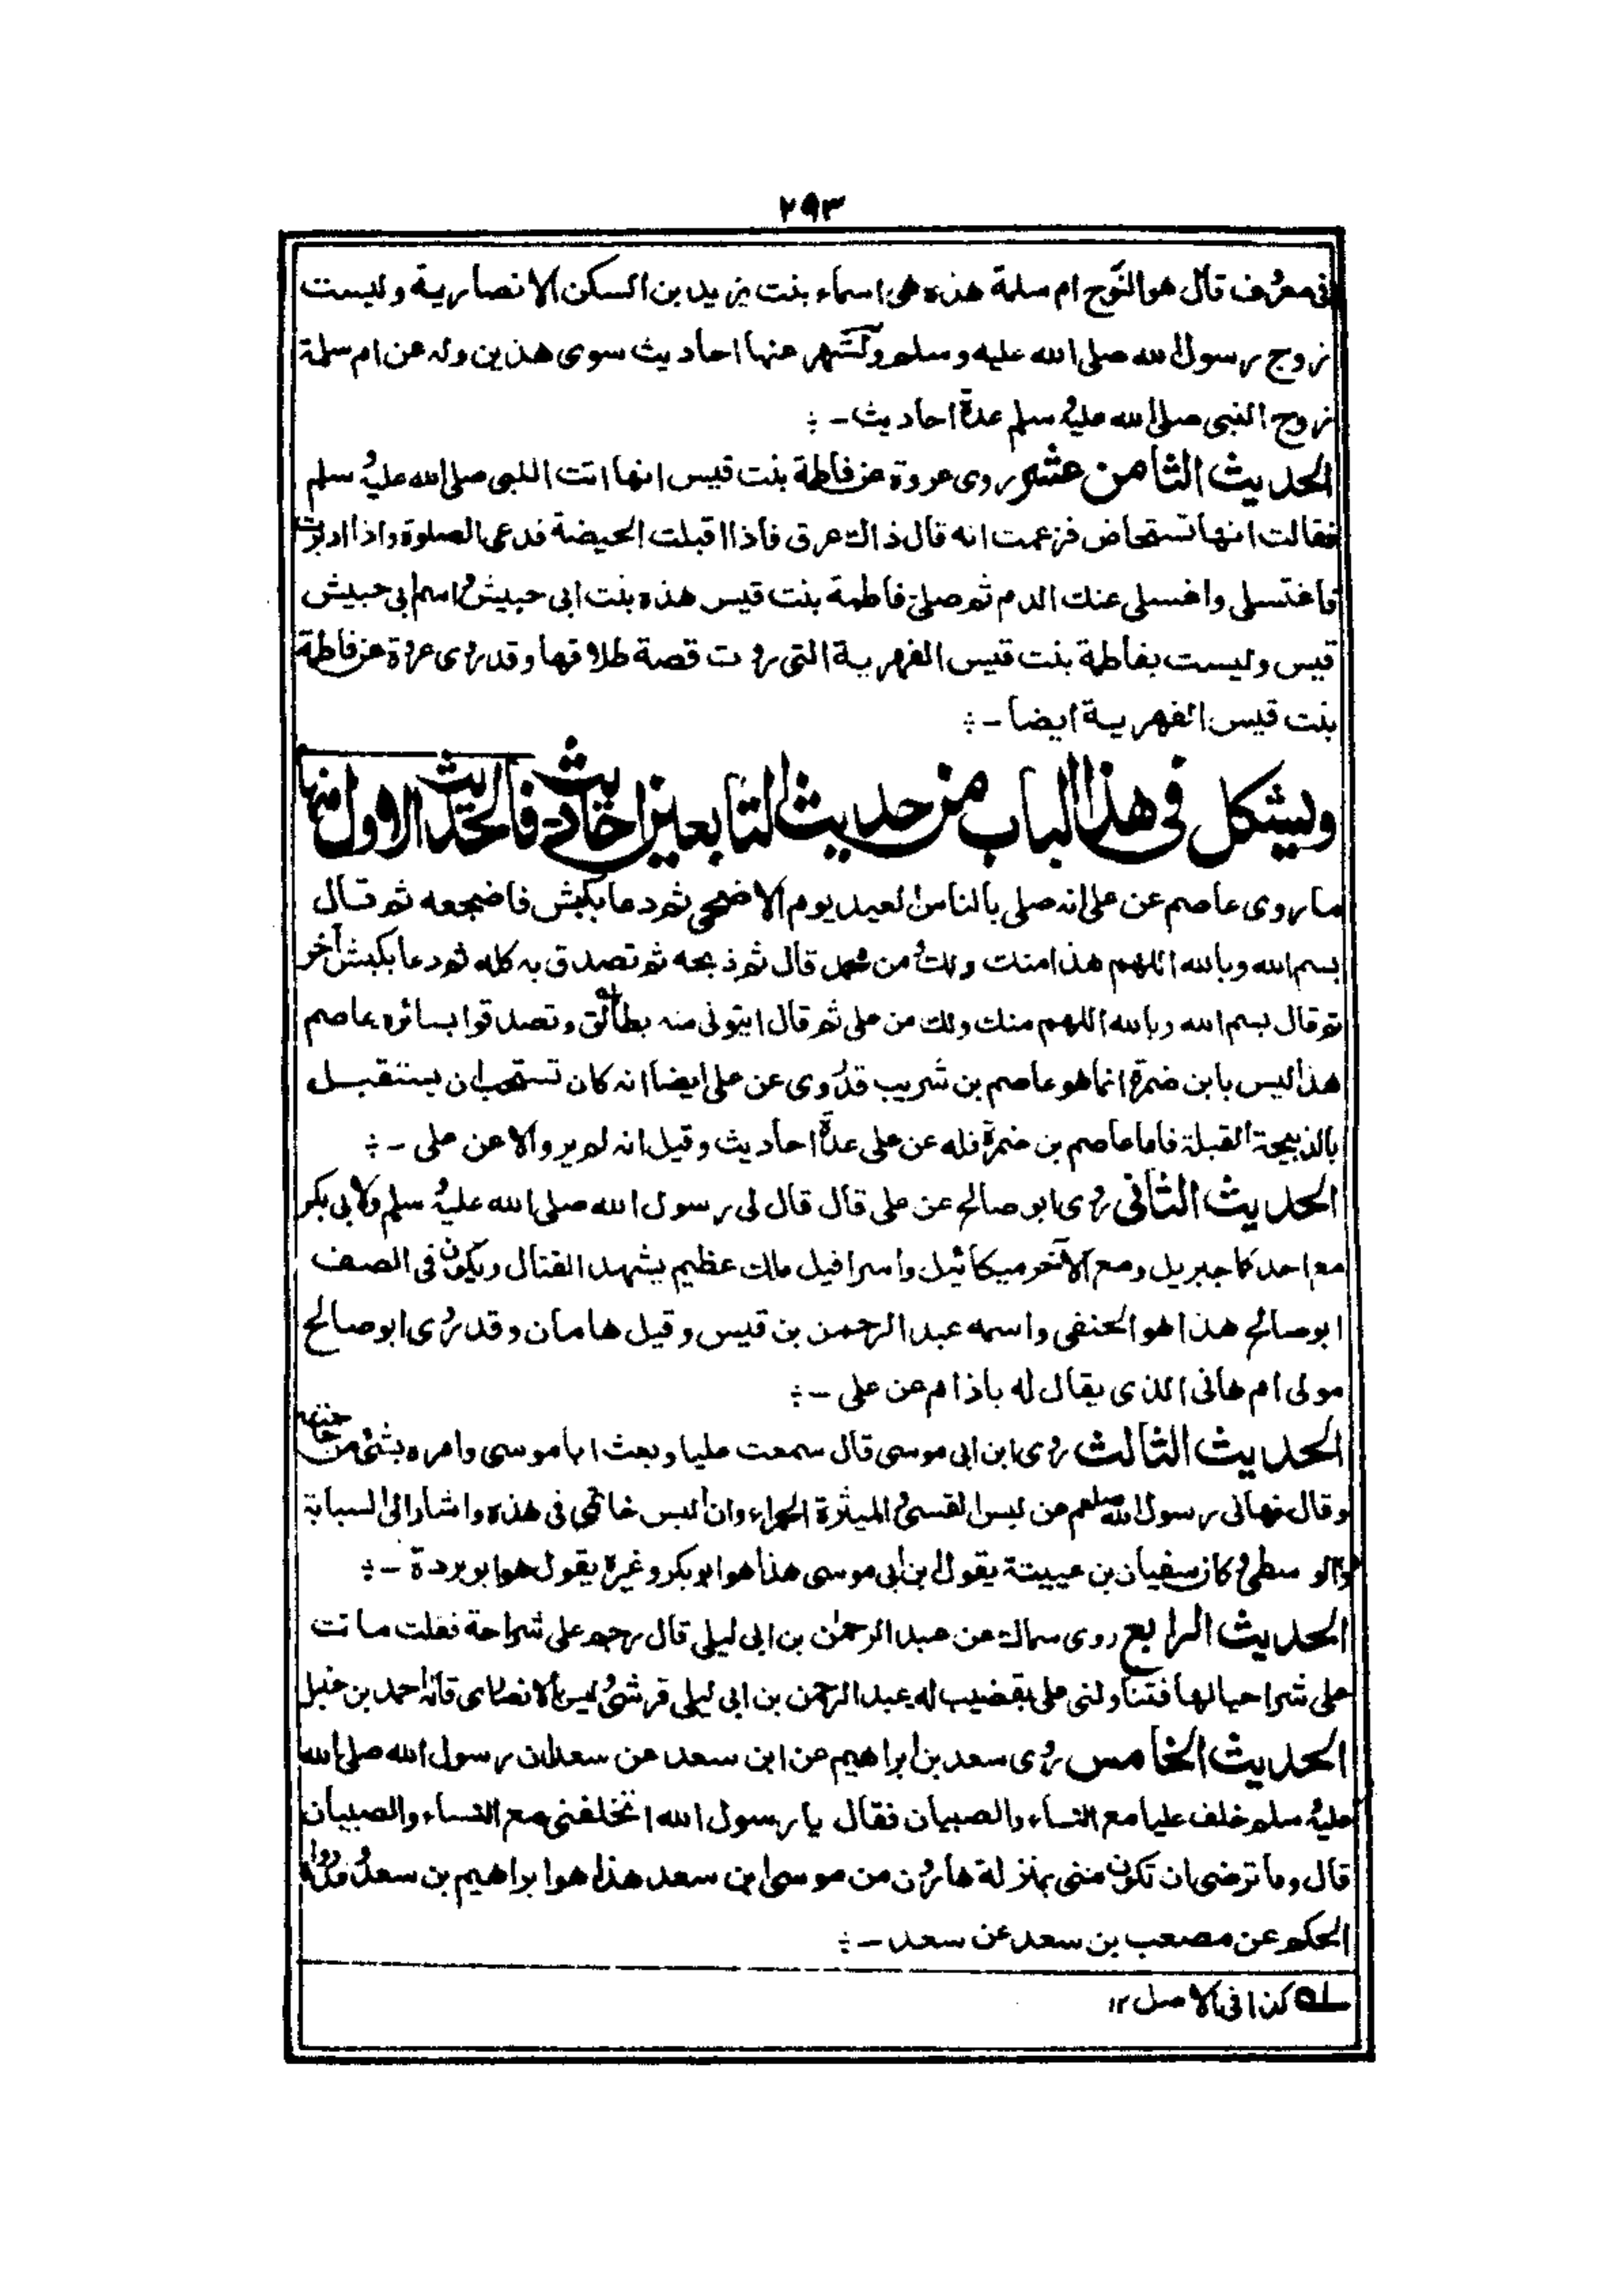 ٢٩٣
فى معروف قال هو النوح ام سلمة هذه هى اسماء بنت يزيد بن السكن الانصارية وليست
زوج رسول الله صلى الله عليه وسلم ولشهر عنها احاديث سوى هذين وله عن ام سلمة
زوج النبى صلى الله عليه وسلم عدة احاديث -:
الحديث الثامن عشر روى عروة عن فاطمة بنت قيس انها اتت النبى صلى الله عليه وسلم
فقالت انها تستحاض فزعمت انه قال ذاك عرق فاذا اقبلت الحيضة فدعى الصلوة واذا ادبرت
فاغتسلى واغسلى عنك الدم ثم صلى فاطمة بنت قيس هذه بنت ابى حبيش واسم ابى حبيش
قيس وليست بفاطمة بنت قيس الفهرية التى روت قصة طلاقها وقد روى عروة عن فاطمة
بنت قيس الفهرية ايضا -:
ويشكل فى هذا الباب من حديث التابعين احاديث فالحديث الاول منها
ما روى عاصم عن على انه صلى بالناس العيد يوم الاضحى ثم دعا بكبش فاضجعه ثم قال
بسم الله وبالله اللهم هذا منك ولك من محمد قال ثم ذبحه ثم تصدق به كله ثم دعا بكبش آخر
ثم قال بسم الله وبالله اللهم منك ولك من على ثم قال ايتونى منه بطالق وتصدقوا بسائره عاصم
هذا ليس بابن ضمرة انما هو عاصم بن شريب قد روى عن على ايضا انه كان تستحب ان يستقبل
بالذبيحة القبلة فاما عاصم بن ضمرة فله عن على عدة احاديث وقيل انه لم يرو الا عن على -:
الحديث الثانى روى ابو صالح عن على قال قال لى رسول الله صلى الله عليه وسلم ولابى بكر
مع احدكما جبريل ومع الآخر ميكائيل واسرافيل ملك عظيم يشهد القتال ويكون فى الصف
ابو صالح هذا هو الحنفى واسمه عبد الرحمن بن قيس وقيل هامان وقد روى ابو صالح
مولى ام هانى الذى يقال له باذام عن على -:
الحديث الثالث روى ابن ابى موسى قال سمعت عليا وبعث ابا موسى وامره بشئ من حاجته
وقال نهانى رسول الله صلعم عن لبس القسى والميثرة الحمراء وان البس خاتمى فى هذه واشار الى السبابة
والوسطى وكان سفيان بن عيينة يقول ابن ابى موسى هذا هو ابو بكر وغيره يقول هو ابو بردة -:
الحديث الرابع روى سماك عن عبد الرحمٰن بن ابى ليلى قال رجم على شراحة فقلت ماتت
على شر احيالها فتناولنى على بقضيب له عبد الرحمن بن ابى ليلى قرشى وليس بالانصارى قاله احمد بن حنبل
الحديث الخامس روى سعد بن ابراهيم عن ابن سعد عن سعد ان رسول الله صلى الله
عليه وسلم خلف عليا مع النساء والصبيان فقال يا رسول الله اتخلفنى مع النساء والصبيان
قال وما ترضى ان تكون منى بمنزلة هارون من موسى ابن سعد هذا هو ابراهيم بن سعد وقد رواه
الحكم عن مصعب بن سعد عن سعد -:
له كذا فى الاصل ١٢